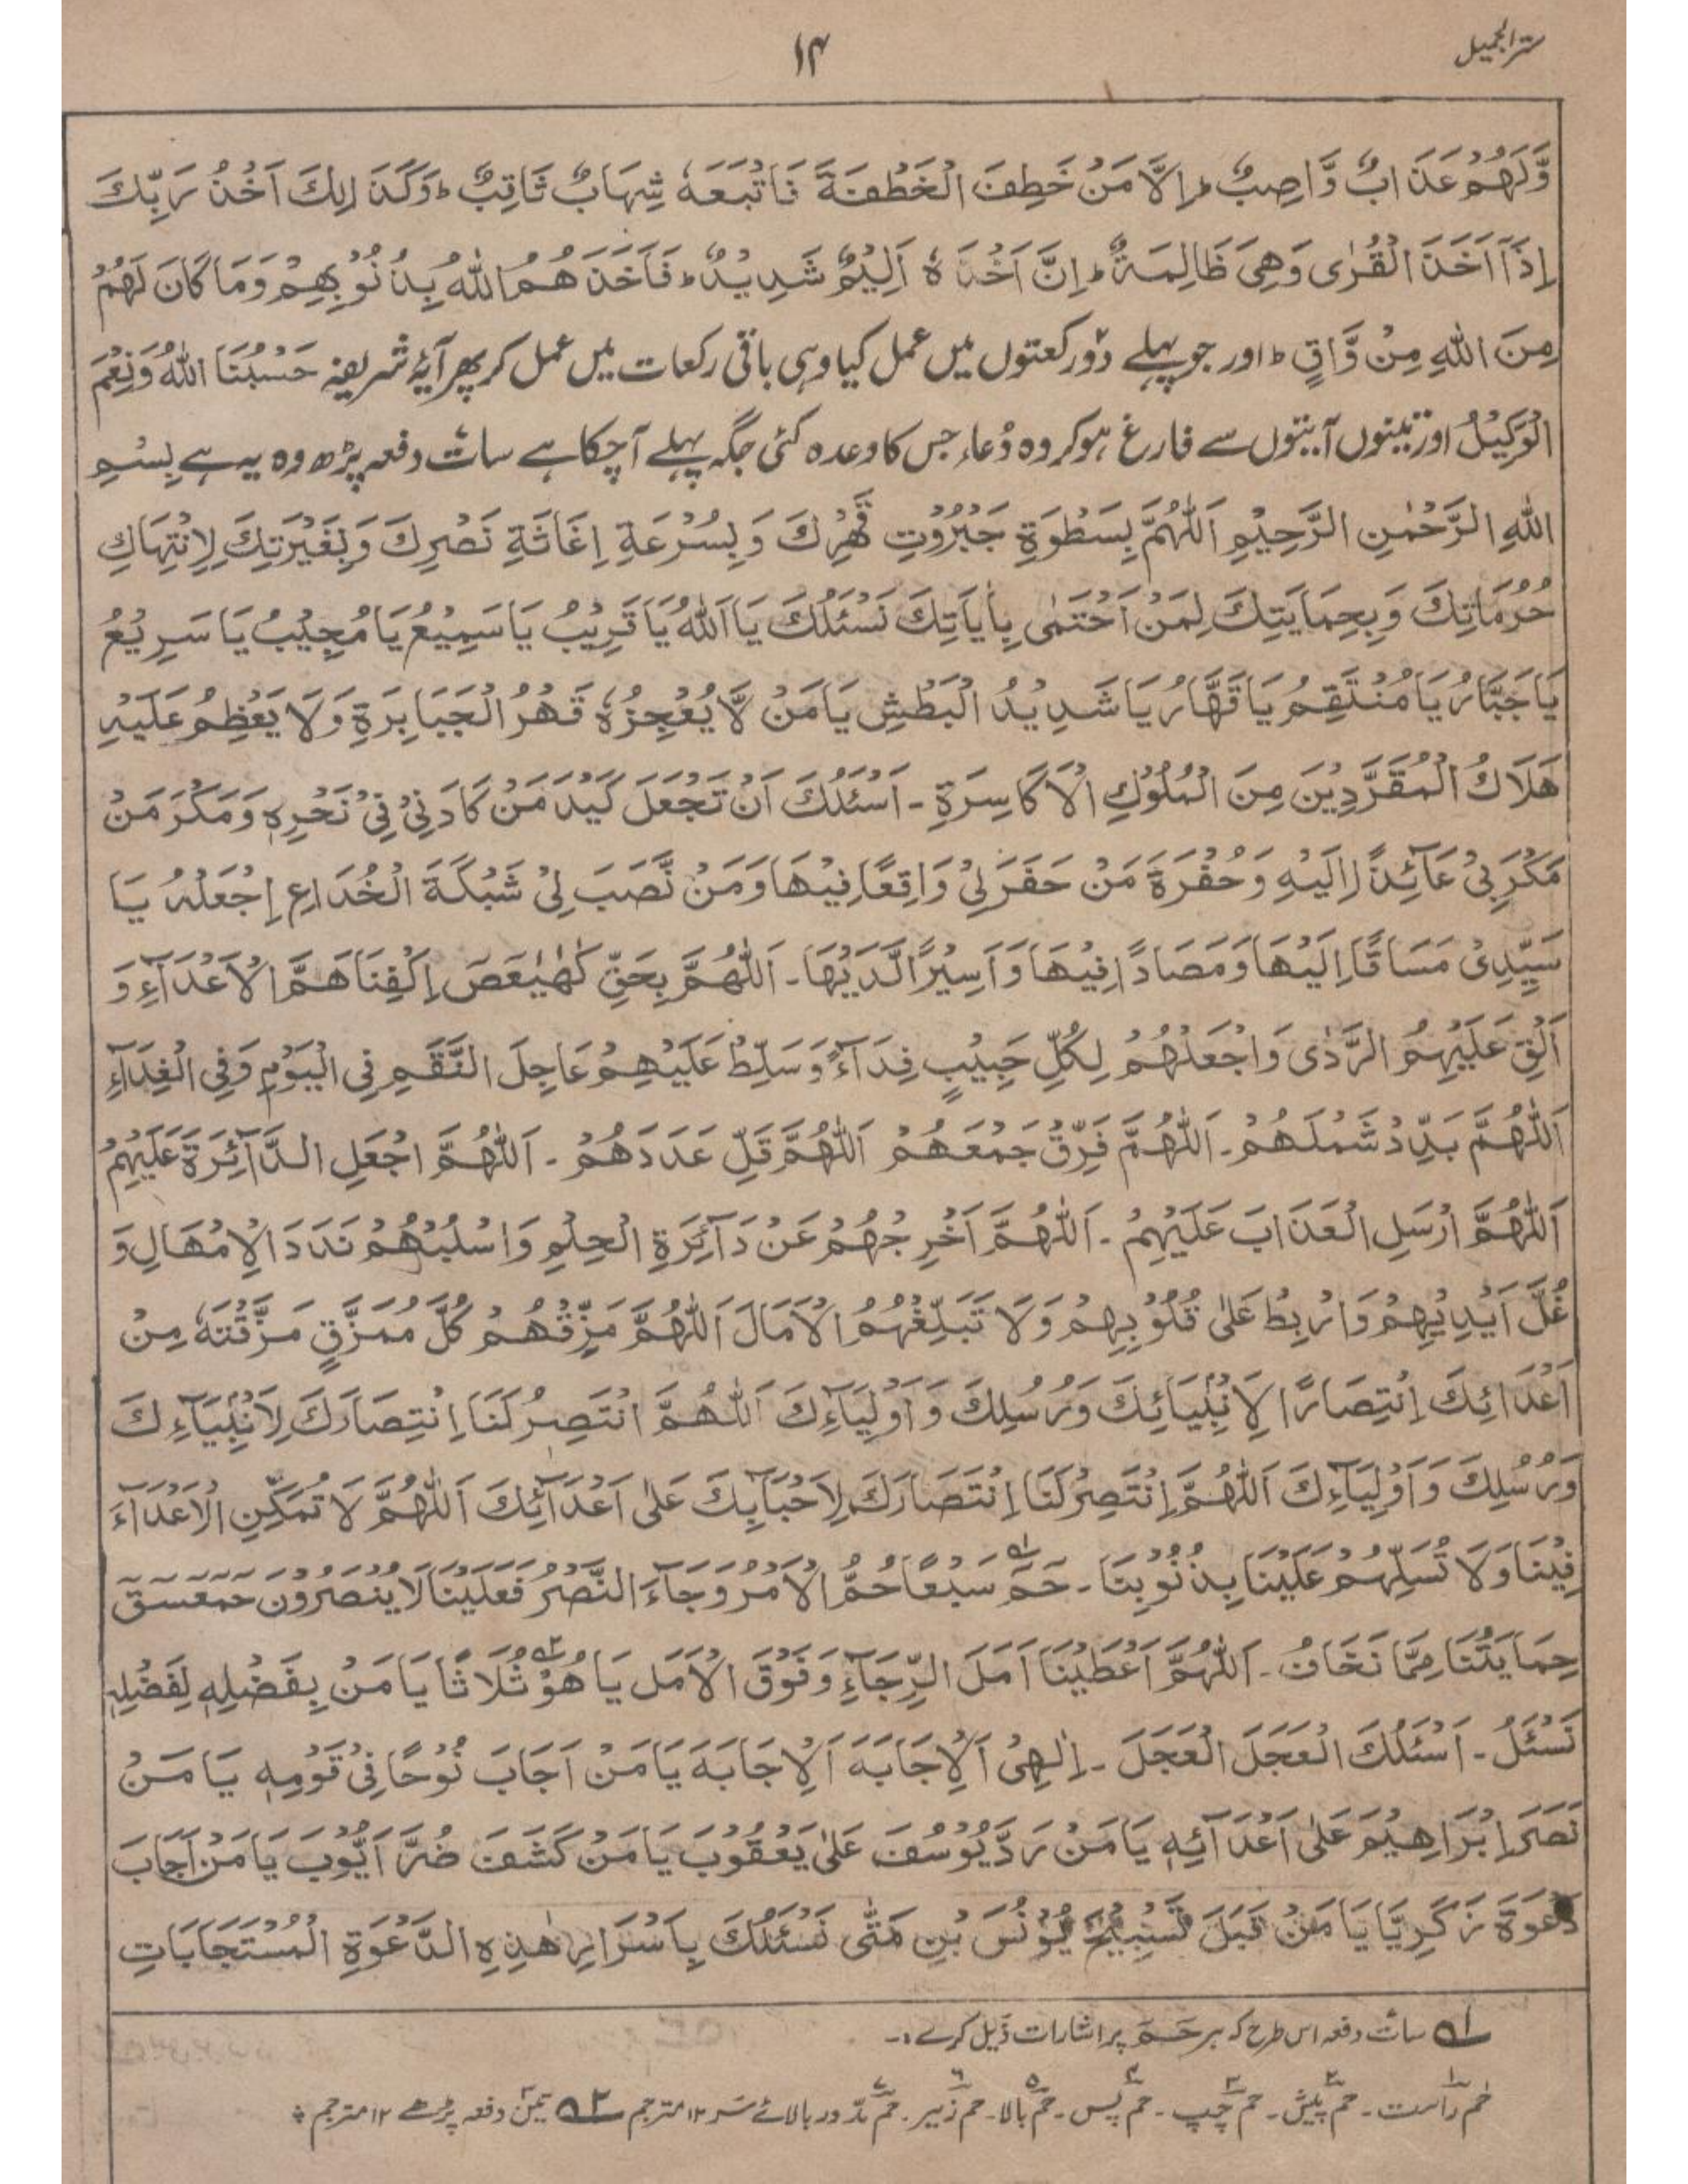 سترالجمیل
۱۴
وَّلَهُمْ عَذَابٌ وَّاصِبٌ ؕ اِلَّا مَنْ خَطِفَ الْخَطْفَةَ فَاَتْبَعَهٗ شِهَابٌ ثَاقِبٌ ؕ وَكَذٰلِكَ اَخْذُ رَبِّكَ
اِذَآ اَخَذَ الْقُرٰى وَهِىَ ظَالِمَةٌ ؕ اِنَّ اَخْذَهٗ اَلِيْمٌ شَدِيْدٌ ؕ فَاَخَذَهُمُ اللّٰهُ بِذُنُوْبِهِمْ وَمَا كَانَ لَهُمْ
مِنَ اللّٰهِ مِنْ وَّاقٍ ؕ اور جو پہلے دو رکعتوں میں عمل کیا وہی باقی رکعات میں عمل کر پھر آیۂ شریفہ حَسْبُنَا اللّٰهُ وَنِعْمَ
الْوَكِيْلُ اور تینوں آیتوں سے فارغ ہو کر وہ دُعاء جس کا وعدہ کئی جگہ پہلے آچکا ہے سات دفعہ پڑھ وہ یہ ہے بِسْمِ
اللّٰهِ الرَّحْمٰنِ الرَّحِيْمِ اَللّٰهُمَّ بِسَطْوَةِ جَبْرُوْتِ قَهْرِكَ وَبِسُرْعَةِ اِغَاثَةِ نَصْرِكَ وَبِغَيْرَتِكَ لِاِنْتِهَاكِ
حُرُمَاتِكَ وَبِحِمَايَتِكَ لِمَنْ اَحْتَمٰى بِاٰيَاتِكَ نَسْئَلُكَ يَا اَللّٰهُ يَا قَرِيْبُ يَا سَمِيْعُ يَا مُجِيْبُ يَا سَرِيْعُ
يَا جَبَّارُ يَا مُنْتَقِمُ يَا قَهَّارُ يَا شَدِيْدُ الْبَطْشِ يَا مَنْ لَّا يُعْجِزُهٗ قَهْرُ الْجَبَابِرَةِ وَلَا يَعْظِمُ عَلَيْهِ
هَلَاكُ الْمُقَرَّدِيْنَ مِنَ الْمُلُوْكِ الْاَكَاسِرَةِ ـ اَسْئَلُكَ اَنْ تَجْعَلَ كَيْدَ مَنْ كَادَنِيْ فِيْ نَحْرِهٖ وَمَكْرَ مَنْ
مَكَرَ بِيْ عَآئِدًا اِلَيْهِ وَحُفْرَةَ مَنْ حَفَرَ لِيْ وَاقِعًا فِيْهَا وَمَنْ نَّصَبَ لِيْ شَبْكَةَ الْخُدَاعِ اِجْعَلْهُ يَا
سَيِّدِىْ مَسَاقًا اِلَيْهَا وَمَصَادًا فِيْهَا وَاَسِيْرًا لَّدَيْهَا ـ اَللّٰهُمَّ بِحَقِّ كٓهٰيٰعَصَ اِكْفِنَا هَمَّ الْاَعْدَآءِ وَ
اَلْقِ عَلَيْهِمُ الرَّدٰى وَاجْعَلْهُمْ لِكُلِّ حَبِيْبٍ فِدَآءً وَسَلِّطْ عَلَيْهِمْ عَاجِلَ النَّقَمِ فِى الْيَوْمِ وَفِى الْغَدَآءِ
اَللّٰهُمَّ بَدِّدْ شَمْلَهُمْ ـ اَللّٰهُمَّ فَرِّقْ جَمْعَهُمْ اَللّٰهُمَّ قَلِّ عَدَدَهُمْ ـ اَللّٰهُمَّ اجْعَلِ الدَّآئِرَةَ عَلَيْهِمْ
اَللّٰهُمَّ اَرْسَلِ الْعَذَابَ عَلَيْهِمْ ـ اَللّٰهُمَّ اَخْرِجْهُمْ عَنْ دَآئِرَةِ الْحِلْمِ وَاسْلُبْهُمْ نَدَدَ الْاِمْهَالِ وَ
غُلَّ اَيْدِيْهِمْ وَارْبِطْ عَلٰى قُلُوْبِهِمْ وَلَا تَبَلِّغْهُمُ الْاَمَالَ اَللّٰهُمَّ مَزِّقْهُمْ كُلَّ مُمَزَّقٍ مَزَّقْتَهٗ مِنْ
اَعْدَائِكَ اِنْتِصَارًا لِاَنْبِيَائِكَ وَرُسُلِكَ وَاَوْلِيَآءِكَ اَللّٰهُمَّ انْتَصِرْ لَنَا اِنْتِصَارَكَ لِاَنْبِيَآءِكَ
وَرُسُلِكَ وَاَوْلِيَآءِكَ اَللّٰهُمَّ اِنْتَصِرْ لَنَا اِنْتَصَارَكَ لِاَحْبَآبِكَ عَلٰى اَعْدَآئِكَ اَللّٰهُمَّ لَا تُمَكِّنِ الْاَعْدَآءَ
فِيْنَا وَلَا تُسَلِّهُمْ عَلَيْنَا بِذُنُوْبِنَا ـ حٰمٓ ؎۱ سَبْعًا حُمَّ الْاَمْرُ وَجَآءَ النَّصْرُ فَعَلَيْنَا لَا يُنْصَرُوْنَ حٓمٓعٓسٓقٓ
حِمَايَتُنَا مِمَّا نَخَافُ ـ اَللّٰهُمَّ اَعْطِيْنَا اَمَلَ الرِّجَآءِ وَفَوْقَ الْاَمَل يَا هُوْ ؎۲ ثُلَاثًا يَا مَنْ بِفَضْلِهٖ لِفَضْلِهٖ
نَسْئَلُ ـ اَسْئَلُكَ الْعَجَلَ الْعَجَلَ ـ اِلٰهِىْ اَلْاِجَابَةَ اَلْاِجَابَةَ يَا مَنْ اَجَابَ نُوْحًا فِىْ قَوْمِهٖ يَا مَنْ
نَصَرَ اِبْرَاهِيْمَ عَلٰى اَعْدَآئِهٖ يَا مَنْ رَدَّ يُوْسُفَ عَلٰى يَعْقُوْبَ يَا مَنْ كَشَفَ ضُرَّ اَيُّوْبَ يَا مَنْ اَجَابَ
دَعْوَةَ زَكَرِيَّا يَا مَنْ قَبَلَ تَسْبِيْحَ يُوْنُسَ بْنِ مَتّٰى نَسْئَلُكَ بِاَسْرَارِ هٰذِهِ الدَّعْوَةِ الْمُسْتَجَابَاتِ
؎۱ سات دفعہ اس طرح کہ ہر حٰمٓ پر اشارات ذیل کرے ۔
حٰم راست ۔ حٰم پیش ۔ حٰم چپ ۔ حٰم پس ۔ حٰم بالا ۔ حٰم زیر ۔ حٰم دور بالائے سر ۱۲ مترجم ؎۲ تین دفعہ پڑھے ۱۲ مترجم